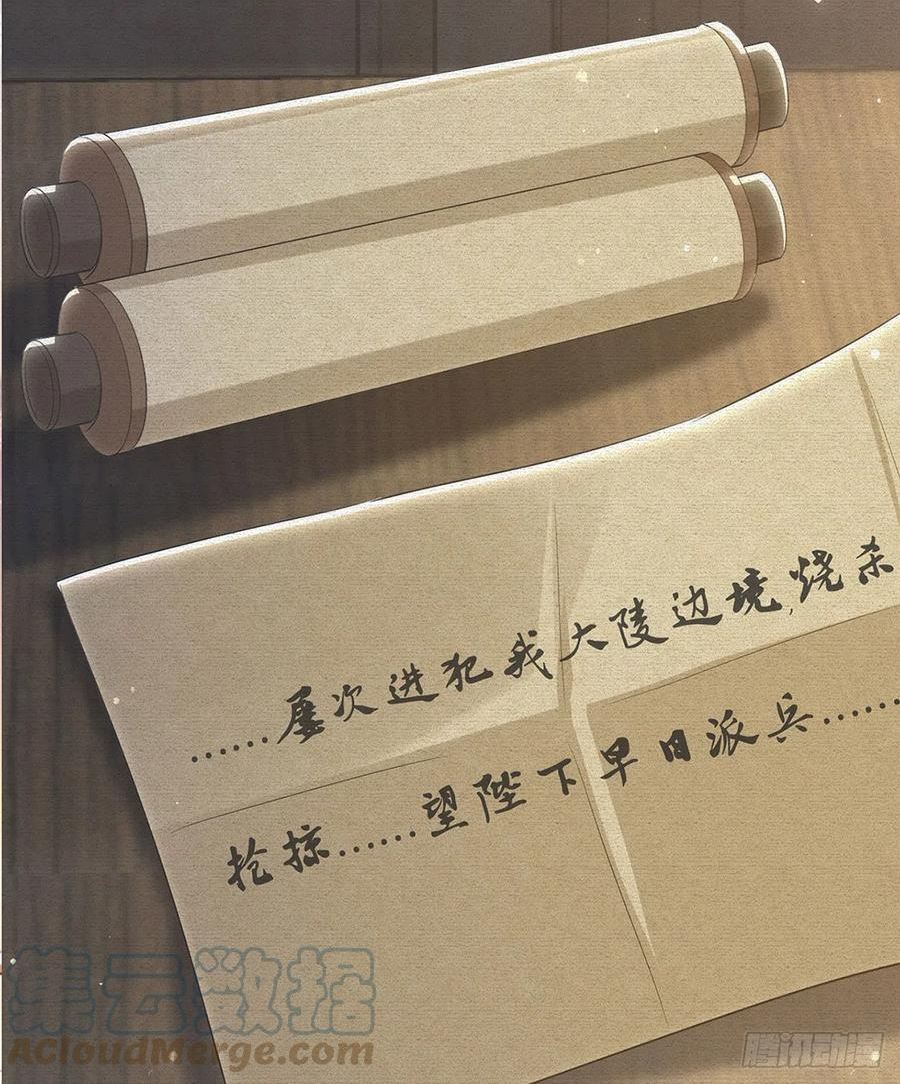 ……屡次进犯我大陵边境,烧杀
抢掠……望陛下早日派兵……
集云数据
ACloudMerge.com
腾讯动漫